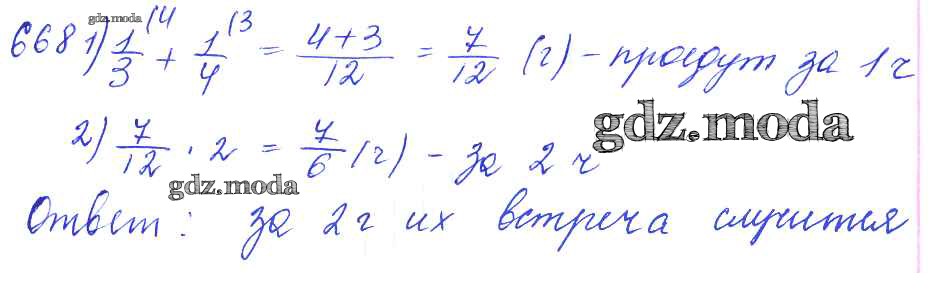 gdz.moda
668 1) 1/3 (4 + 1/4 (3 = 4+3/12 = 7/12 (ч) - проедут за 1 ч
2) 7/12 · 2 = 7/6 (ч) - за 2 ч
gdz.moda
gdz.moda
Ответ: за 2 ч их встреча случится